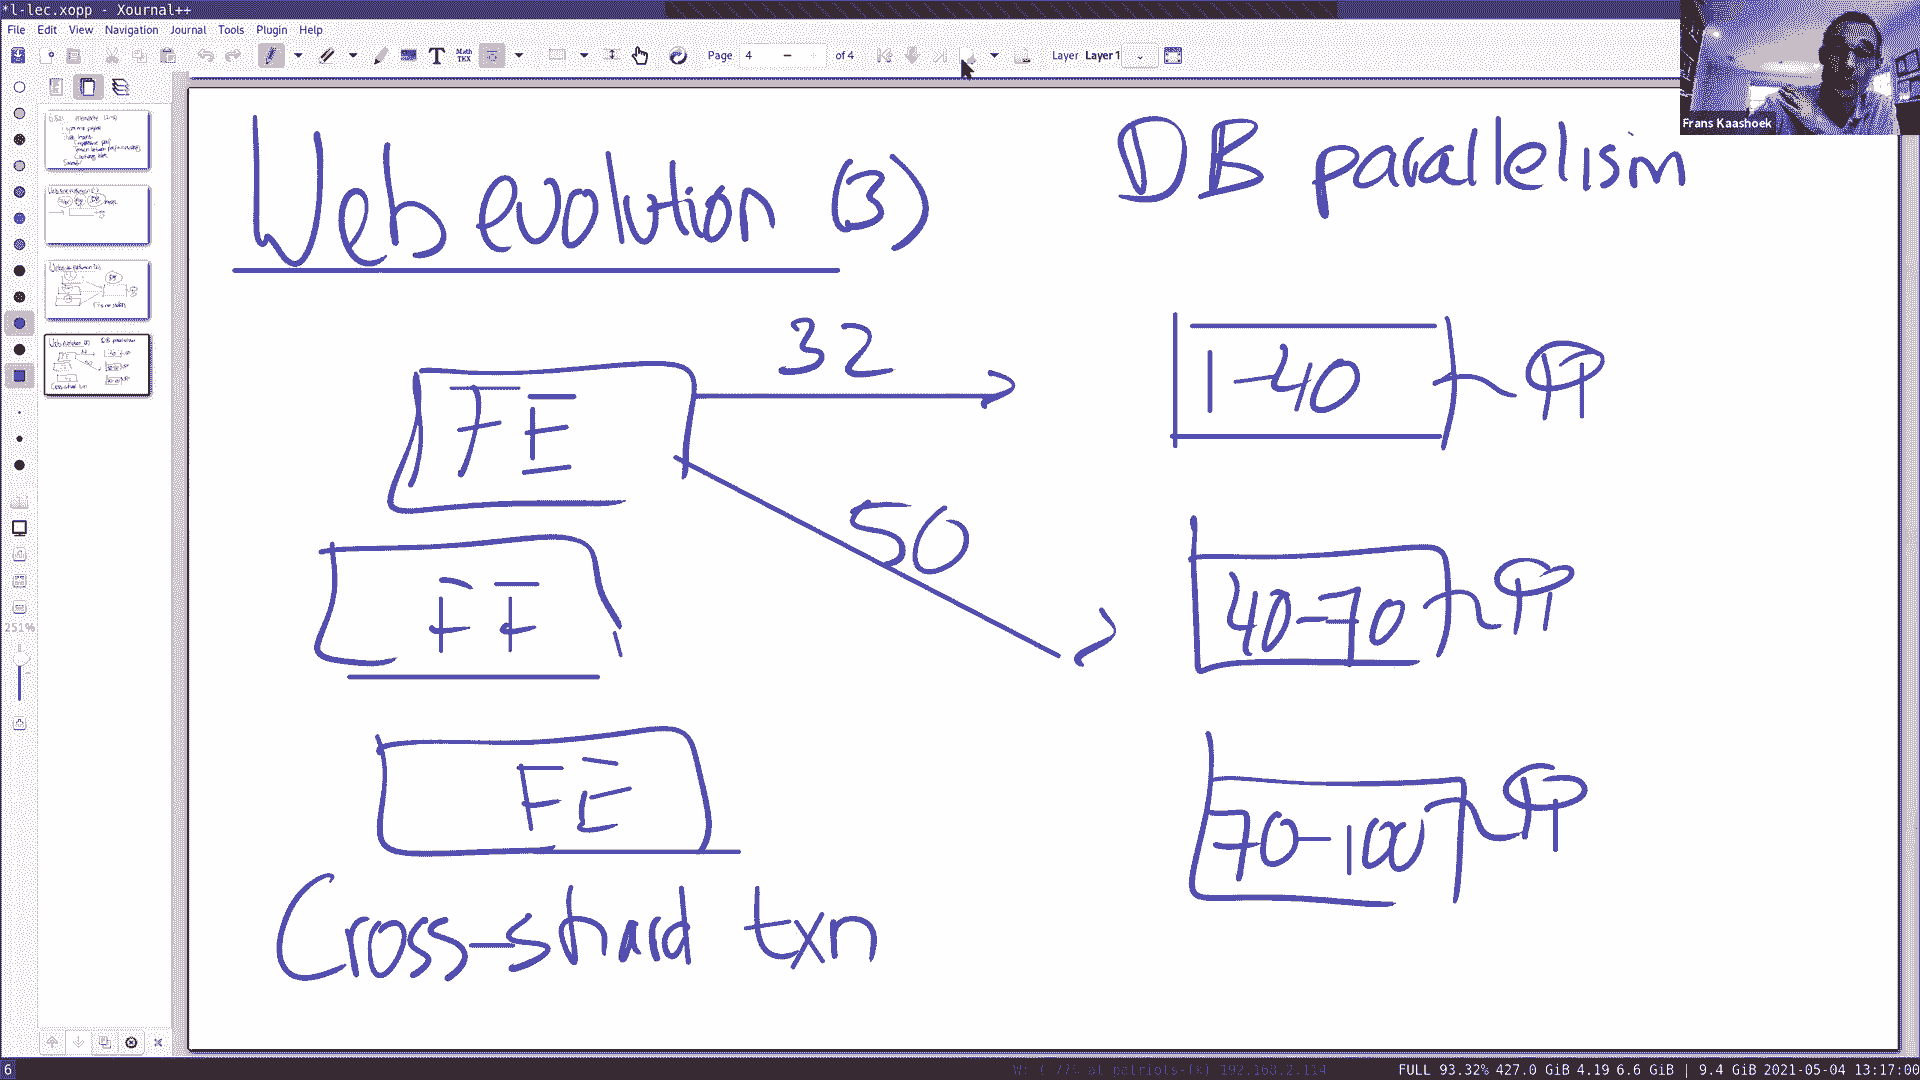 *l-lec.xopp - Xournal++
File Edit View Navigation Journal Tools Plugin Help
Page 4 of 4 Layer Layer 1
Frans Kaashoek
Web evolution (3)
DB parallelism
32
FE
1-40
50
FE
40-70
FE
70-100
Cross-shard txn
251%
6
FULL 93.32% 427.0 GiB 4.19 6.6 GiB | 9.4 GiB 2021-05-04 13:17:00